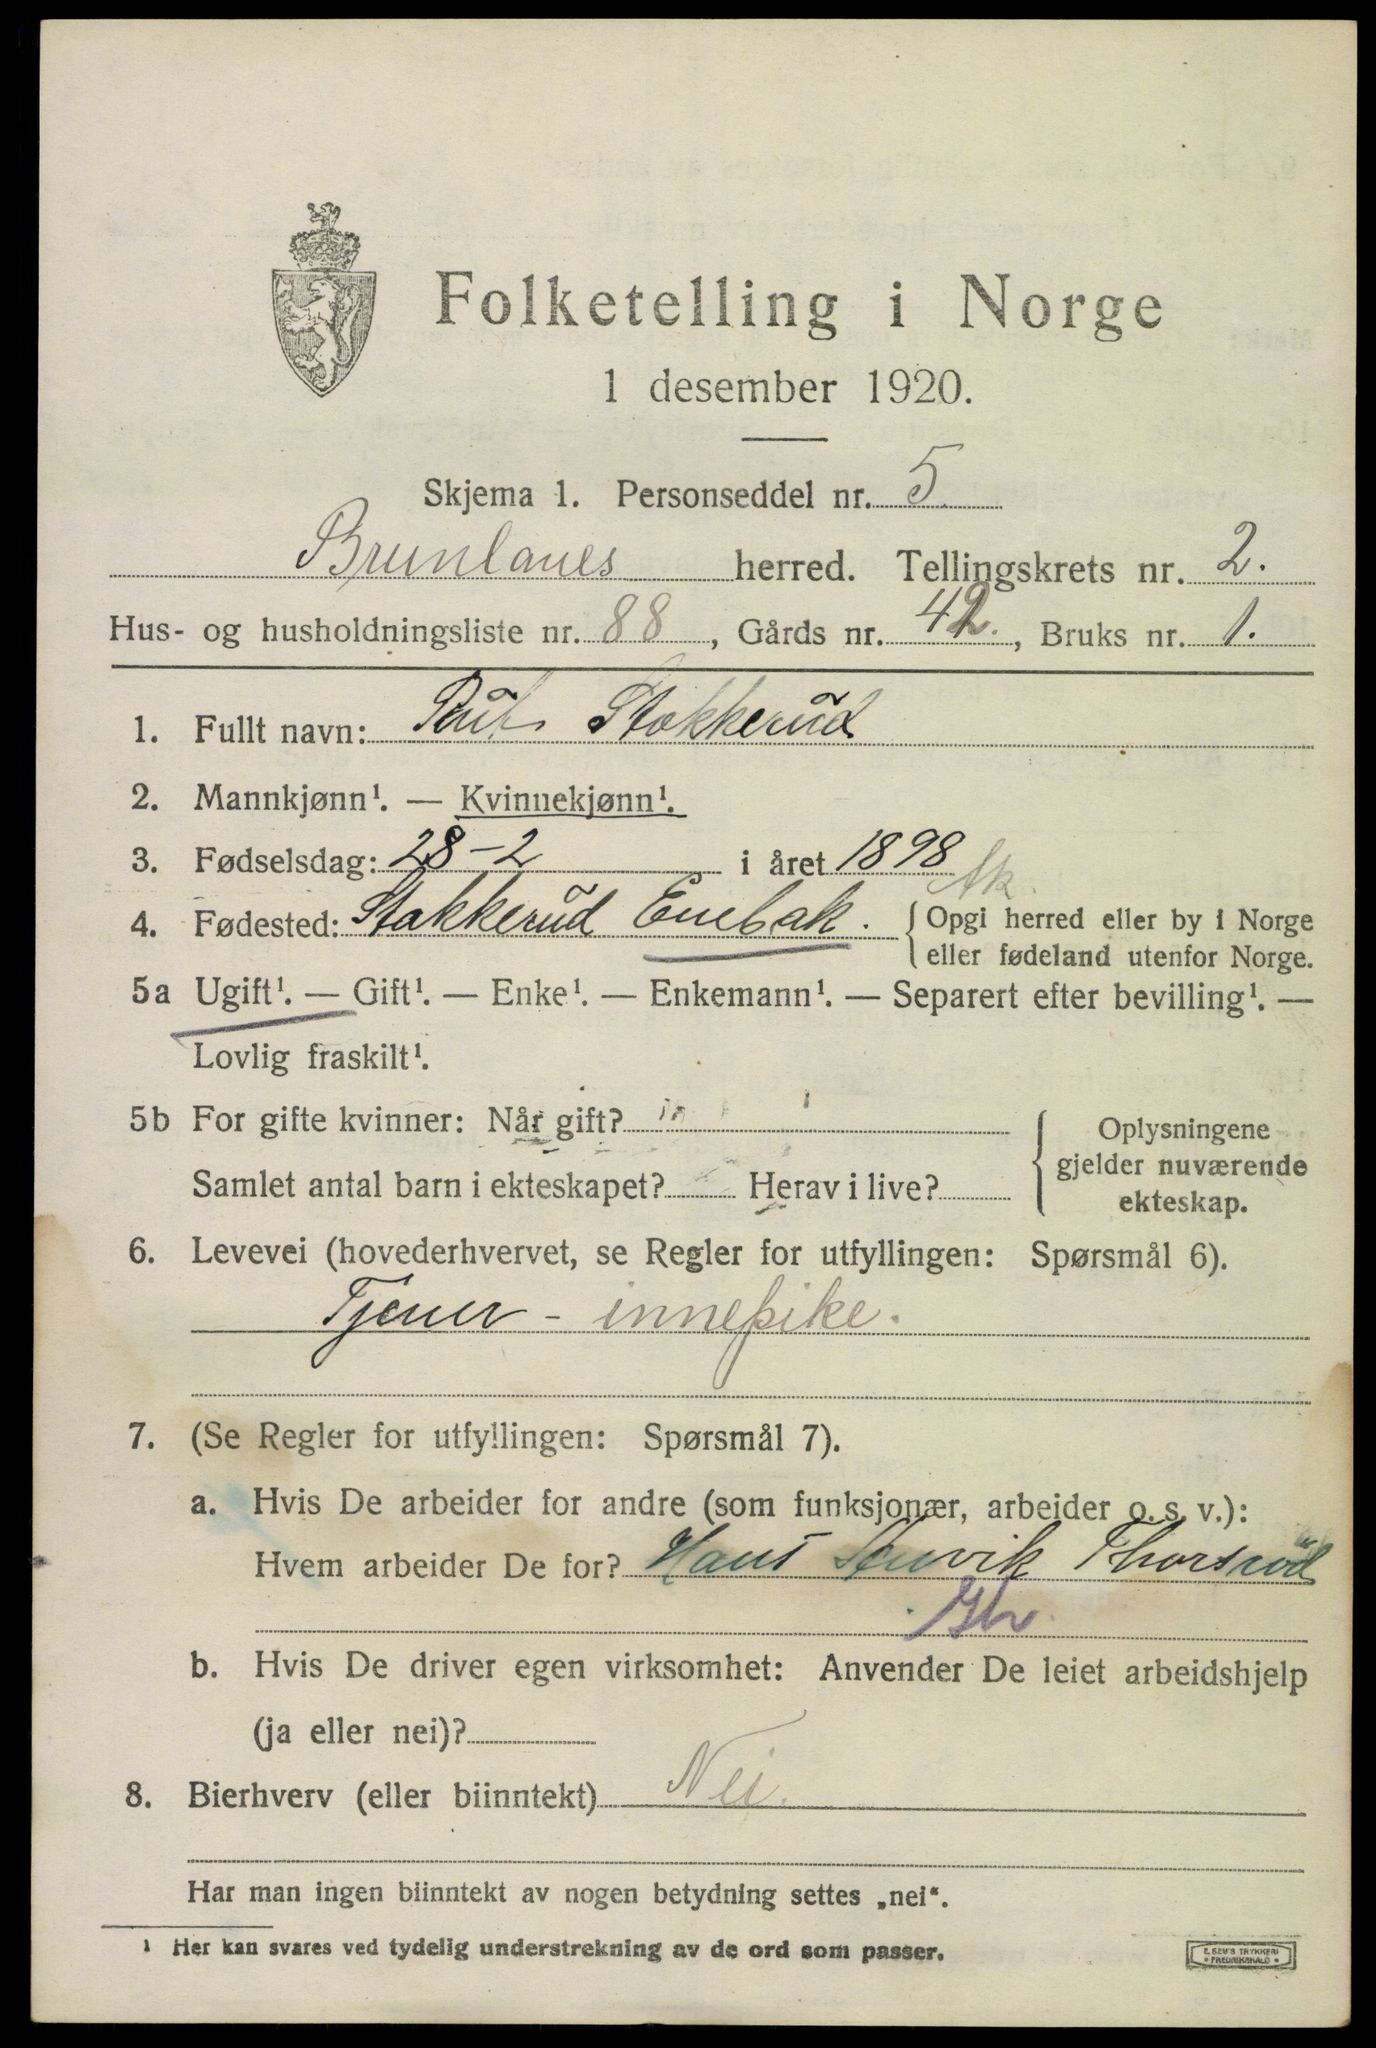 Folketelling i Norge
1 desember 1920.
Skjema 1. Personseddel nr. 5
Brunlanes herred. Tellingskrets nr. 2.
Hus- og husholdningsliste nr. 88, Gårds nr. 42., Bruks nr. 1.
1. Fullt navn: Rut Stokkerud
2. Mannkjønn¹. — Kvinnekjønn¹.
3. Fødselsdag: 28-2 i året 1898
Ak.
4. Fødested: Stakkerud Enebak. { Opgi herred eller by i Norge
eller fødeland utenfor Norge.
5a Ugift¹. — Gift¹. — Enke¹. — Enkemann¹. — Separert efter bevilling¹. —
Lovlig fraskilt¹.
5b For gifte kvinner: Når gift?
Samlet antal barn i ekteskapet? Herav i live?
{ Oplysningene
gjelder nuværende
ekteskap.
6. Levevei (hovederhvervet, se Regler for utfyllingen: Spørsmål 6).
Tjener - innepike.
7. (Se Regler for utfyllingen: Spørsmål 7).
a. Hvis De arbeider for andre (som funksjonær, arbeider o. s. v.):
Hvem arbeider De for? Hans Thorsrød
b. Hvis De driver egen virksomhet: Anvender De leiet arbeidshjelp
(ja eller nei)?
8. Bierhverv (eller biinntekt) Nei.
Har man ingen biinntekt av nogen betydning settes „nei“.
¹ Her kan svares ved tydelig understrekning av de ord som passer.
E. SEM'S TRYKKERI
FREDRIKSHALD